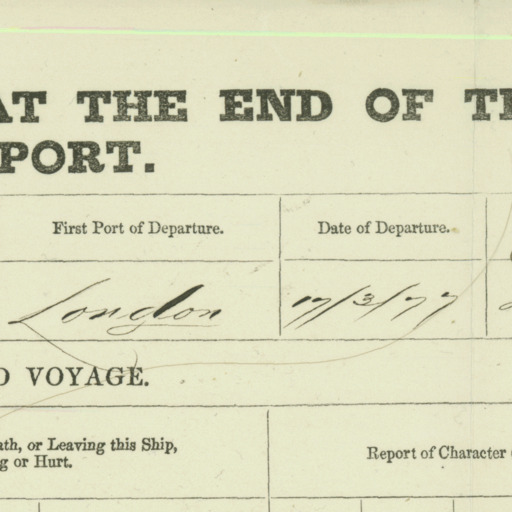 AT THE END OF
PORT.
First Port of Departure. Date of Departure.
London 17/3/77
VOYAGE.
or Leaving this Ship,
or Hurt.
Report of Character